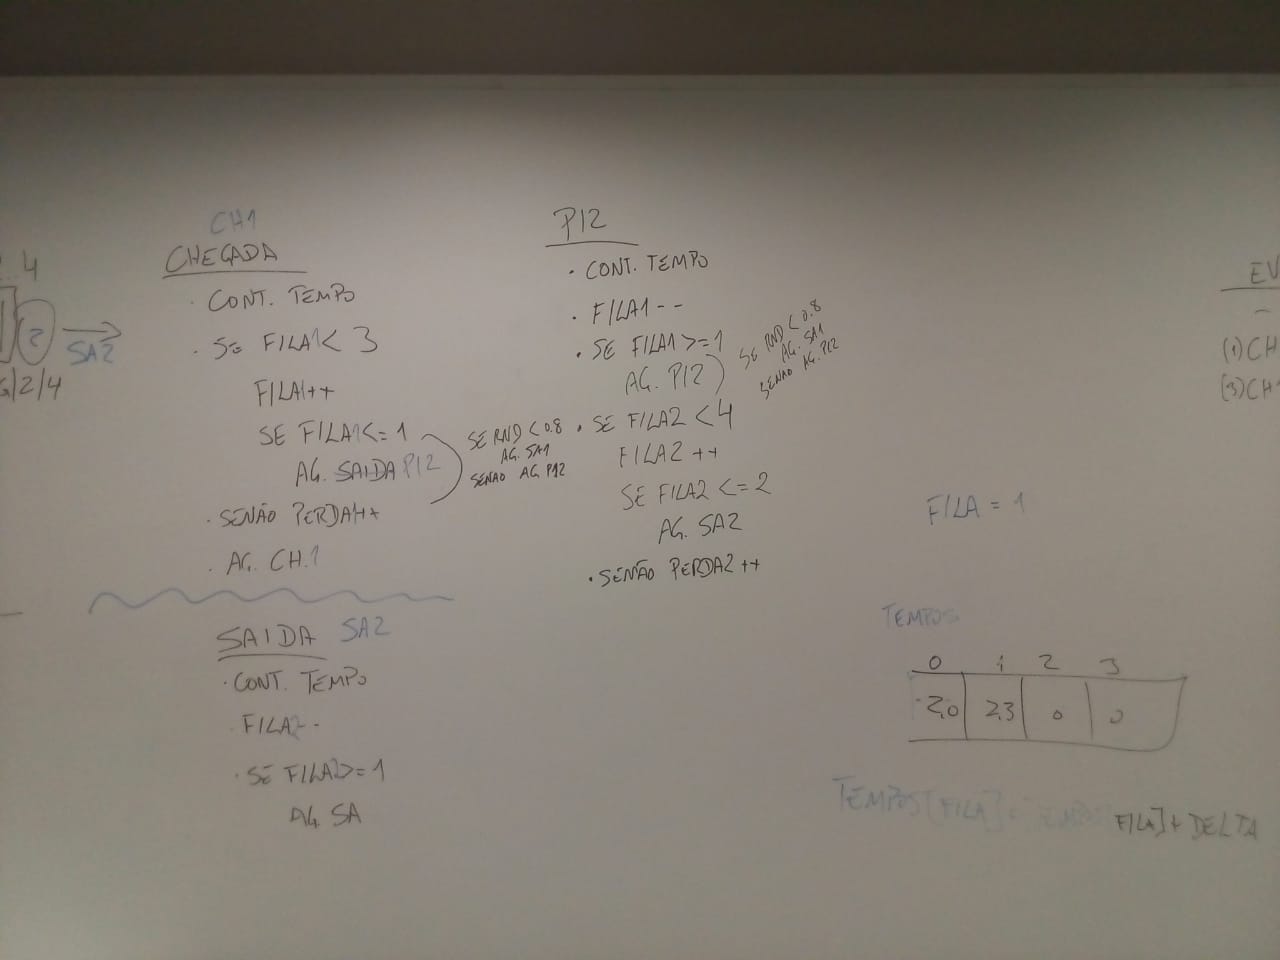 4
2
SA2
G/2/4
CH1
CHEGADA
· CONT. TEMPO
· SE FILA1 < 3
FILA1++
SE FILA1 <= 1
AG. SAIDA P12
SE RND < 0.8
AG. SA1
SENAO AG. P12
· SENÃO PERDA1++
· AG. CH.1
SAIDA SA2
· CONT. TEMPO
· FILA2--
· SE FILA2 >= 1
AG. SA
P12
· CONT. TEMPO
· FILA1--
· SE FILA1 >= 1
AG. P12
SE RND < 0.8
AG. SA1
SENAO AG. P12
· SE FILA2 < 4
FILA2 ++
SE FILA2 <= 2
AG. SA2
· SENÃO PERDA2 ++
EV
-
(1) CH
(3) CH1
FILA = 1
TEMPOS
0 1 2 3
2,0 2,3 0 0
TEMPOS[FILA] = TEMPOS[FILA] + DELTA